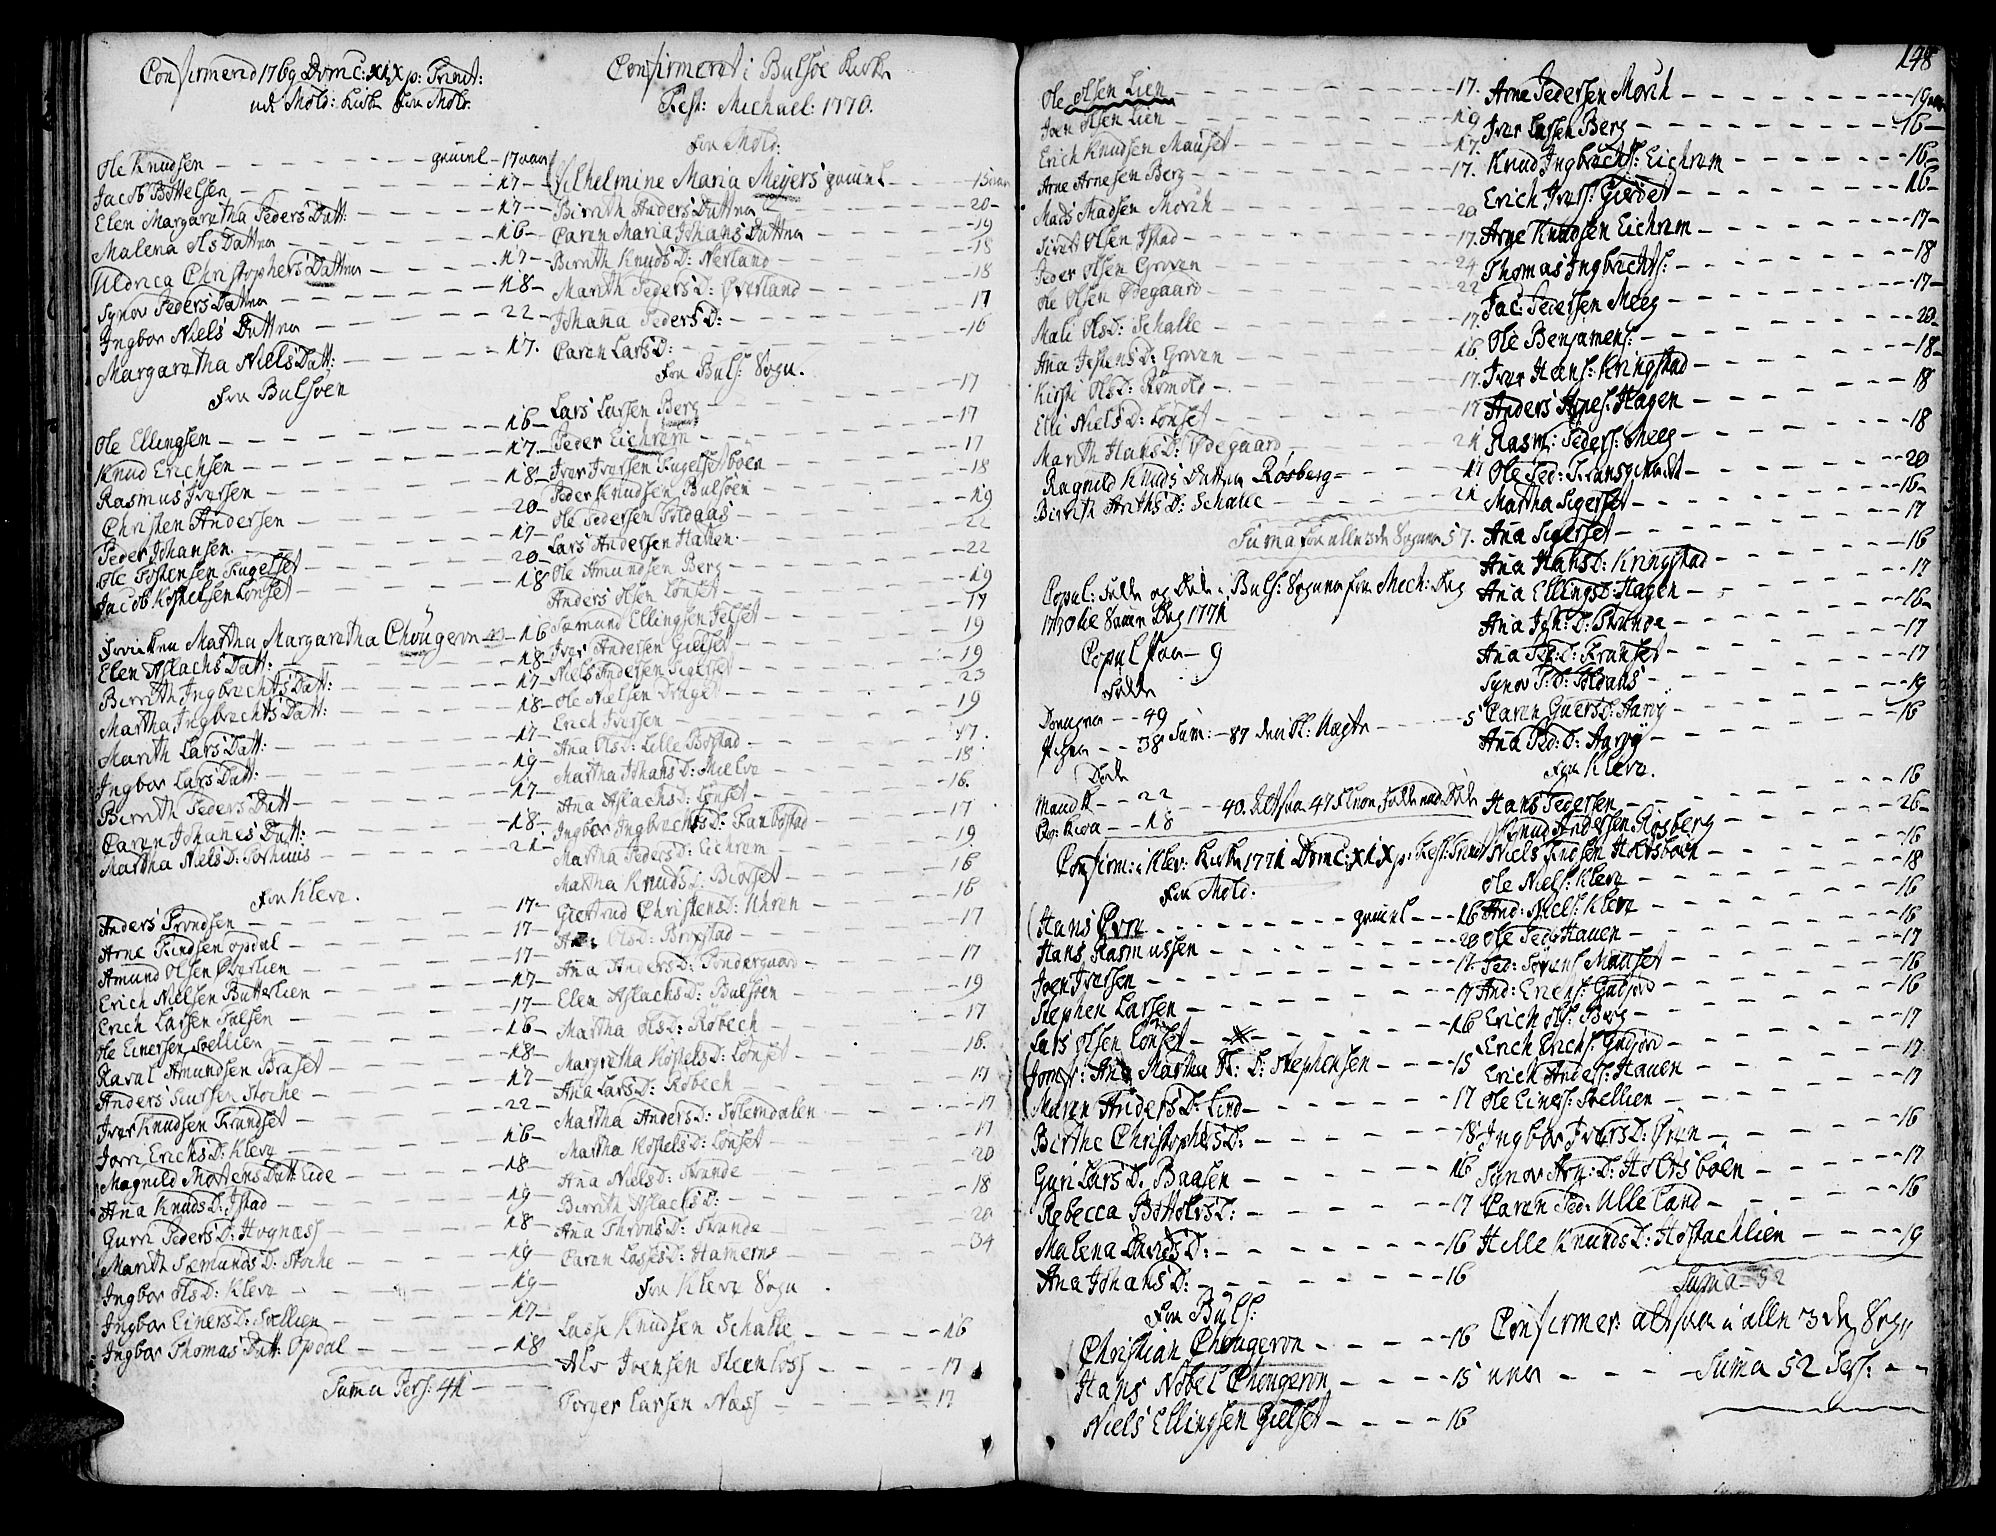 Confirmered 1769 Domc: XIX p: Trinit:
ved Mold: Kirke fra Mold.
Ole Knudsen - gaml - 17 aar
Jacob Bottelsen - 17 -
Elen Margaretha Peders Datt: - 17 -
Malena Ols Datter - 16 -
Uldrica Christophers Datter - 17 -
Synov Peders Datter - 18 -
Ingbor Niels Datter - 22 -
Margaretha Niels Datt: - 17.
fra Bulsöen
Ole Ellingsen - 16 -
Knud Erichsen - 17 -
Rasmus Iversen - 18 -
Christen Andersen - 20 -
Peder Johansen - 17 -
Ole Tostensen Fugelset - 20 -
Jacob Kostelsen Lönset - 18
Fröiken Martha Margaretha Chougeron - 16
Elen Aslachs Datt: - 18 -
Birrith Ingbrechts Datt: - 17 -
Martha Ingbrechts Datt: - 18 -
Marith Lars Datt: - 17 -
Ingbor Lars Datt: - 19 -
Birrith Peders Datt - 17 -
Caren Johanes Datt: - 18 -
Martha Niels D: Torhuus - 21 -
fra Kleve.
Anders Trondsen - 17 -
Arne Findsen Opdal - 17 -
Amund Olsen Överlien - 17 -
Erich Nielsen Butterlien - 17 -
Erich Larsen Talsen - 17 -
Ole Einersen Soellien - 16 -
Raval Amundsen Braset - 18 -
Anders Siursen Stocke - 17 -
Iver Knudsen Trondset - 22 -
Jorn Erichs D: Kleve - 16 -
Magnild Mortens Datt: Eide - 18 -
Ana Knuds D: Istad - 19 -
Gurri Peders D: Hognæss - 18 -
Marith Sæmunds D: Stocke - 19 -
Ingbor Ols D: Kleve - 19 -
Ingbor Einers D: Soellien - 17 -
Ingbor Thomas Datt: Opdal - 18
Suma Pers: 41
Confirmeret i Bulsöe Kirke
Fest: Michael: 1770.
fra Mold:
Vilhelmine Maria Meyers gaml - 15 aar
Birrith Anders Datter - 20 -
Caren Maria Johans Datter - 19
Birrith Knuds D: Nerland - 18
Marith Peders D: Överland - 18
Johana Peders D: - 17
Caren Lars D: - 16
fra Buls: Sogn.
Lars Larsen Berg - 17
Peder Eichrem - 17
Iver Iversen Fugelsetböen - 17
Peder Knudsen Bulsöen - 18
Ole Pedersen Soldaas - 19
Lars Andersen Hatlen - 22
Ole Amundsen Berg - 22
Anders Olsen Lönset - 19
Sæmund Ellingsen Gelset - 17
Iver Andersen Gielset - 19
Niels Andersen Sigerset - 19
Ole Nielsen Draget - 23
Erich Iversen - 19
Ana Ols D: Lille Bostad - 17.
Martha Johans D: Mielve - 18
Ana Aslachs D: Lönset - 16.
Ingbor Ingbrechts D: Farbostad - 17
Martha Peders D: Eichrem - 19
Martha Knuds D: Biorset - 16
Giertrud Christens D: Uhren - 16
Ana Ols D: Brokstad - 17
Ana Anders D: Sondergaard - 17
Elen Aslachs D: Bulsöen - 19
Martha Ols D: Röbech - 17
Margretha Kostels D: Lönset - 16.
Ana Lars D: Röbech - 17
Martha Anders D: Solemdalen - 17
Martha Kostels D: Lönset - 17
Ana Niels D: Strande - 20
Birrith Aslachs D: - 18
Ana Throns D: Strande - 20
Caren Lasses D: Hamernes - 34
fra Kleve Sogn
Lasse Knudsen Schalle - 16
Alv Ivensen Steenlöss - 17
Torger Larsen Næss - 17
148
Ole Olsen Lien - 17.
Iven Olsen Lien - 19
Erich Knudsen Mauset - 17.
Arne Arnesen Berg - 17.
Mads Madsen Morch - 20
Sivert Olsen Istad - 17.
Peder Olsen Groven - 24
Ole Olsen Ödegaard - 22
Mali Ols D: Schalle - 17.
Ana Jostens D: Groven - 16.
Kirsti Ols D: Romöld - 17.
Elli Niels D: Lönset - 17
Marith Hans D: Ödegaard - 21
Ragnild Knuds Datter Rösberg - 17
Birrith Ariths D: Schalle - 21
Suma for alle 3de Sogner 57.
Copul: födde og Döde i Buls: Sogner fra Mich: Dag
1770 til samme Dag 1771
Copul: Par - 9
Födde
Drenger - 49
Piger - 38 Sum: - 87 - 5
Döde
Mandk - 22
Qv: - 18 - 40. Altsaa 47 fleere Födde end Döde
Confirm: i Klev: Kirke 1771 Domc: XIX p: Fest: Trinit
fra Mold:
Hans Övre - gaml - 16
Hans Rasmussen - 20
Iven Iversen - 17.
Stephen Larsen - 17
Lars Olsen Lönset - 16
Jomfr: Ana Martha D: Stephensen - 15
Maren Anders D: Lind - 17
Birthe Christophers D: - 18
Guri Lars D: Baasen - 16
Rebecca Bottolvs D: - 17
Malena Davids D: - 16
Ana Johans D: - 16
fra Buls:
Christian Chougeron - 16
Hans Nobel Chougeron - 15
Niels Ellingsen Gielset - 16
Arne Pedersen Morch - 19 aar
Iver Lassen Berg - 16 -
Knud Ingbrechts: Eichrem - 16 -
Erich Ivers: Gierdet - 16 -
Arne Knudsen Eichrem - 17 -
Thomas Ingbrechts: - 18
Jac: Pedersen Meeg - 17 -
Ole Benjamens: - 20 -
Iver Hans: Kringstad - 18 -
Anders Arnes: Hagen - 18
Rasm: Peders: Meeg - 18
Ole Ped: - 20
Martha Sigerset - 16 -
Ana Sigerset - 17
Ana Hans D: Kringstad - 16
Ana Ellings D: Hagen - 17
Ana Joh: D: Strande - 16 -
Ana Ped: D: Tronset - 17
Synov P: D: Soldaas - 17
Caren Guers D: Aaröe - 19
Ana Ped: D: Aaröe - 16
fra Kleve.
Hans Pedersen - 16
Knud Andersen Rösberg - 26 -
Niels Findsen Holtsböen - 16
Ole Niels: Kleve - 18
And: Niels: Kleve - 16
Ole Peds: Hauen - 16
Ped: Sörens: Mauset - 17
And: Erichs: Gusiord - 16
Erich Ols: Berg - 16
Erich Erichs: Gusiord - 17
Erich Anders: Hauen - 17
Ole Einers: Soellien - 17
Ingbor Ivers D: Ören - 16
Synov Arn: D: Holtsböen - 17
Caren Ped: Ulleland - 16
Hille Knuds D: Hostachlien - 19
Suma - 52
Confirmer: altsaa i alle 3 de Sog-
ner - Suma 52 Pers: